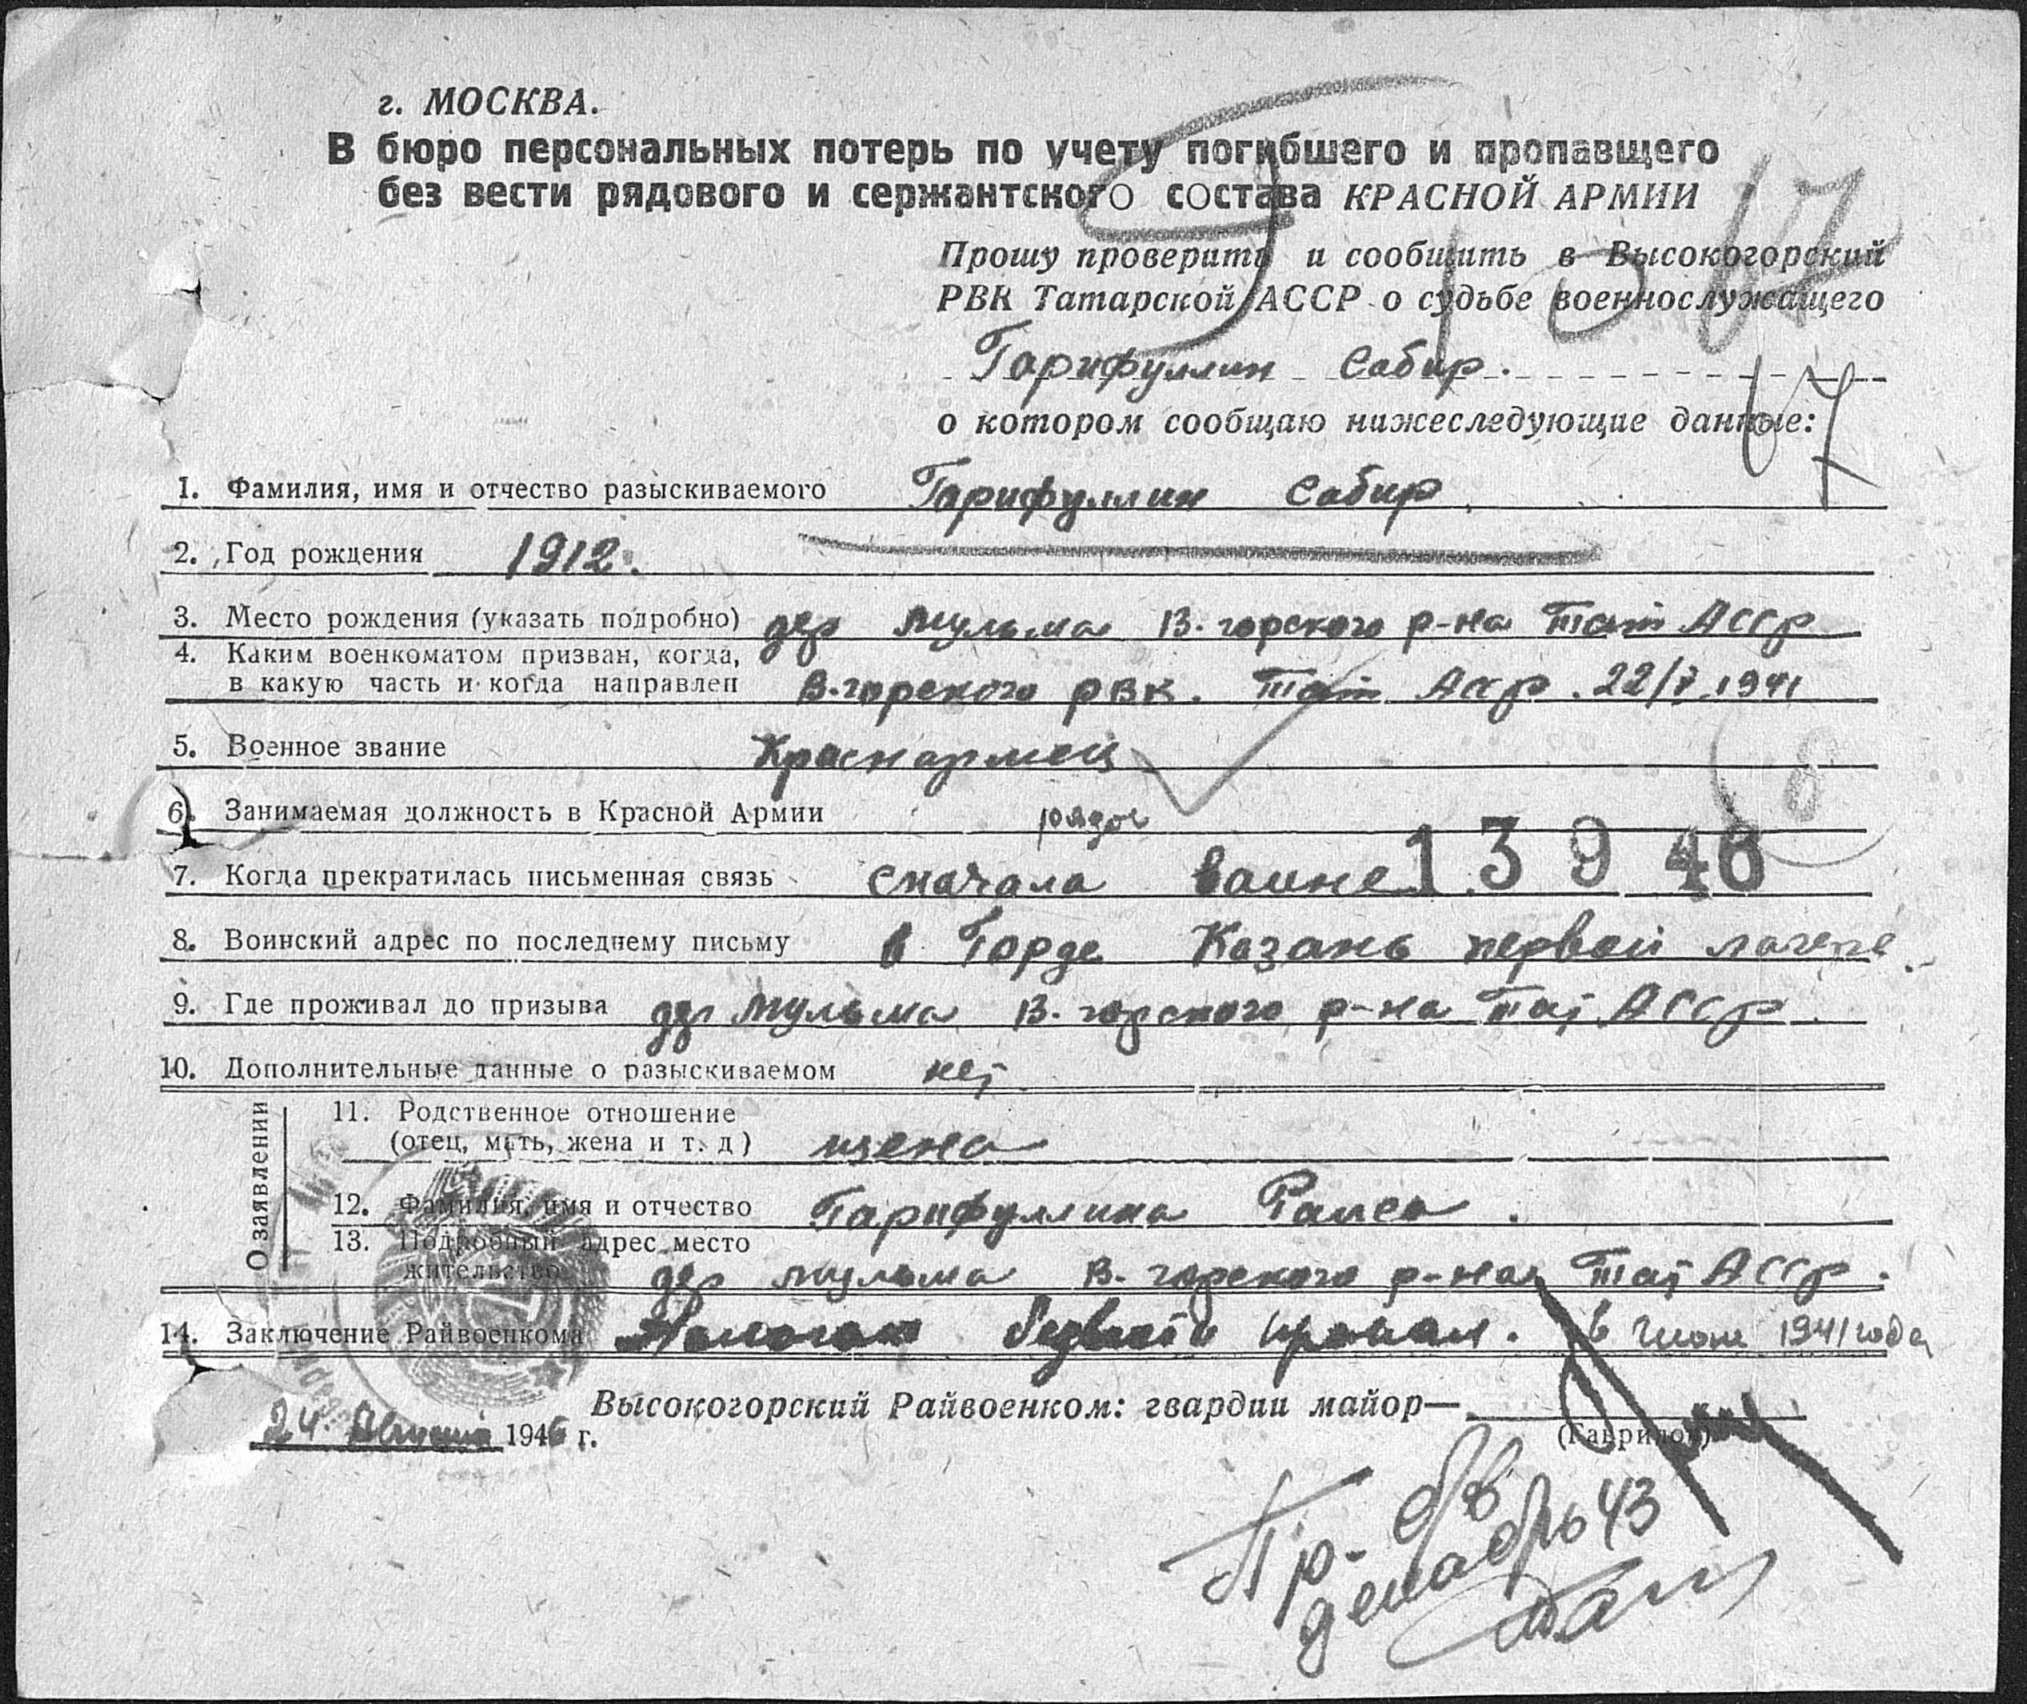 г. МОСКВА.
В бюро персональных потерь по учету погибшего и пропавщего
без вести рядового и сержантского состава КРАСНОЙ АРМИИ
Прошу проверить и сообщить в Высокогорский
РВК Татарской АССР о судьбе военнослужащего
Гарифуллин Сабир.
о котором сообщаю нижеследующие данные:
67
1. Фамилия, имя и отчество разыскиваемого Гарифуллин Сабир
2. Год рождения 1912.
3. Место рождения (указать подробно) дер Мульма В. горского р-на Тат АССР
4. Каким военкоматом призван, когда,
в какую часть и когда направлен В. горского РВК. Тат АССР. 22/7 1941
5. Военное звание Краснармец
6. Занимаемая должность в Красной Армии рядов
7. Когда прекратилась письменная связь сначала ваине 13946
8. Воинский адрес по последнему письму в Горде Казань первой лагере
9. Где проживал до призыва дер Мульма В. горского р-на Тат АССР
10. Дополнительные данные о разыскиваемом нет
О заявлении
11. Родственное отношение
(отец, мать, жена и т. д) жена
12. Фамилия, имя и отчество Гарифуллина Раиса.
13. Подробный адрес место
жительство дер Мульма В. горского р-на Тат АССР.
14. Заключение Райвоенкома пропал. в 1941 года
Высокогорский Райвоенком: гвардии майор—
(Гаврилов)
24. Августа 1946 г.
Пр- б/в
декабрь 43